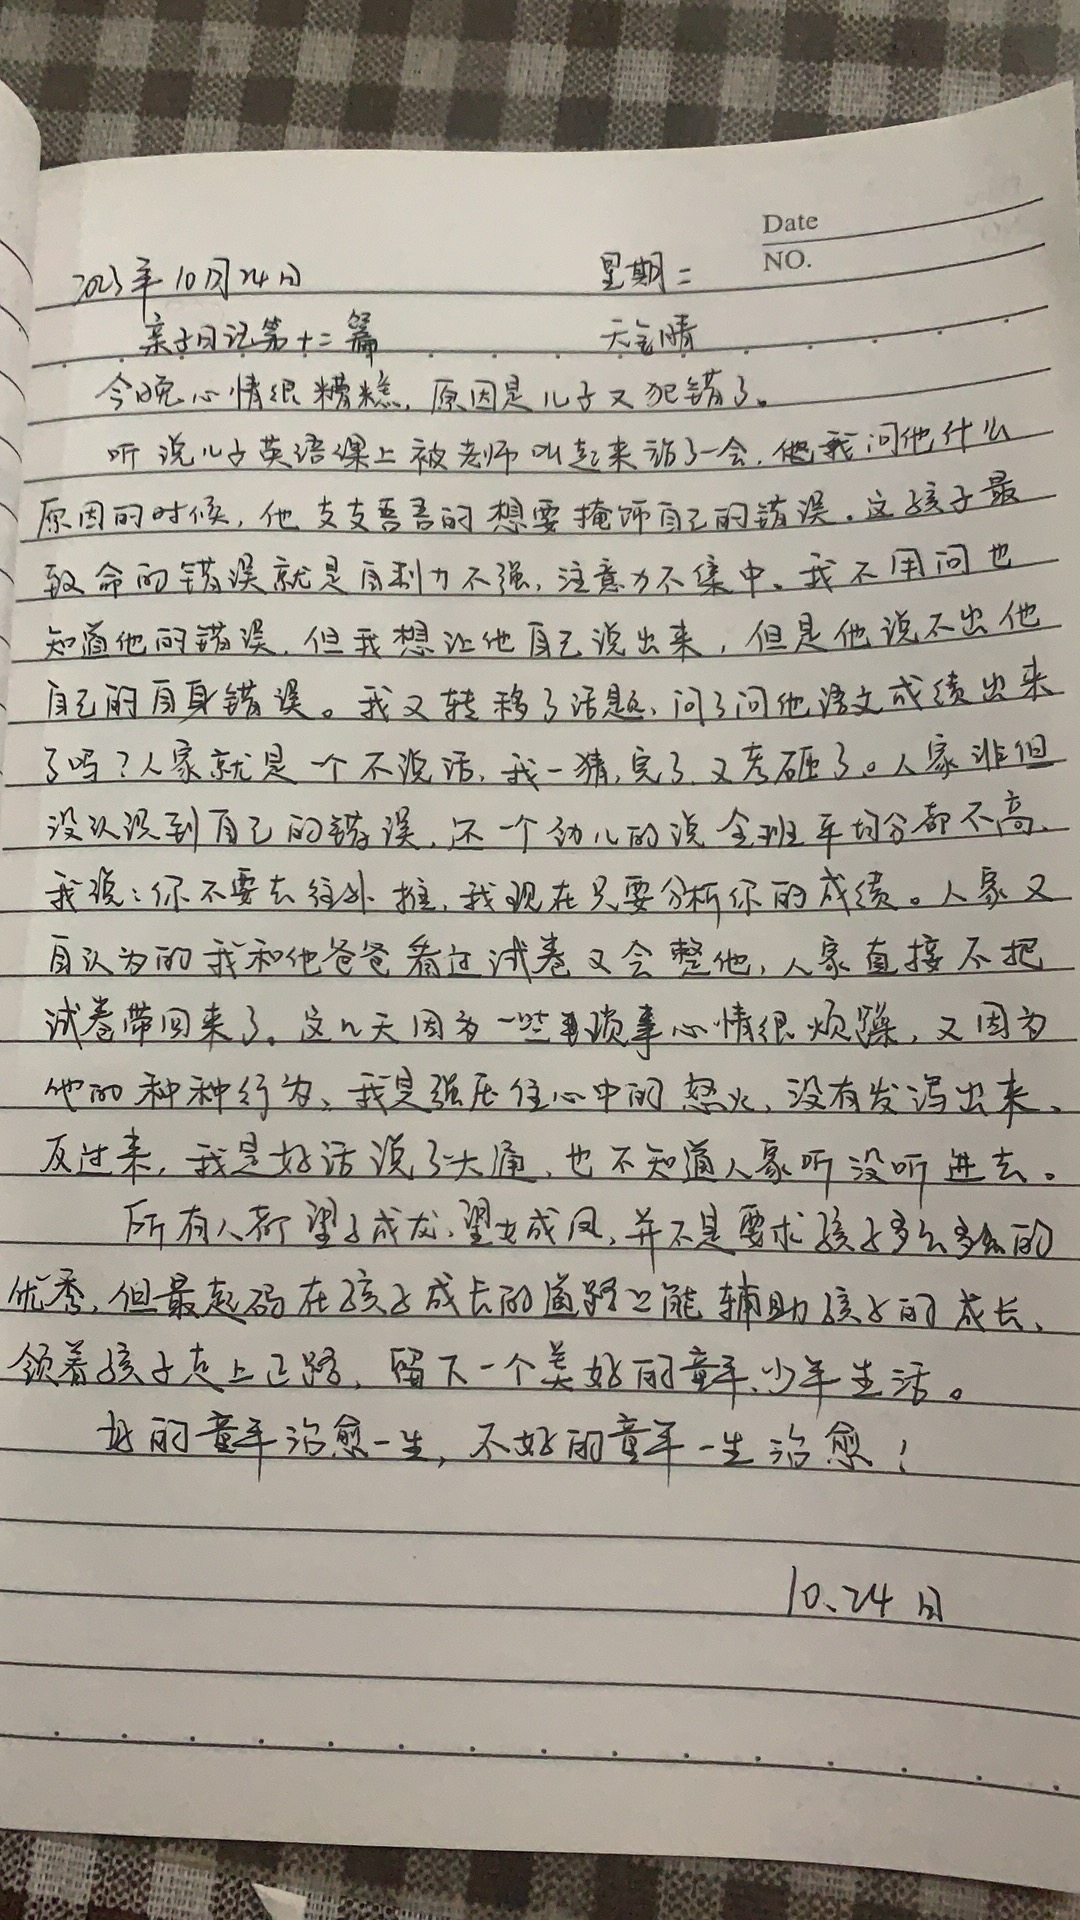 Date
NO.
2023年10月24日 星期二
亲子日记第十二篇 天气晴
今晚心情很糟糕，原因是儿子又犯错了。
听说儿子英语课上被老师叫起来站了一会，我问他什么
原因的时候，他支支吾吾的想要掩饰自己的错误。这孩子最
致命的错误就是自制力不强，注意力不集中。我不用问也
知道他的错误，但我想让他自己说出来，但是他说不出他
自己的自身错误。我又转移了话题、问了问他语文成绩出来
了吗？人家就是一个不说话，我一猜，完了，又考砸了。人家非但
没认识到自己的错误，还一个劲儿的说全班平均分都不高、
我说：你不要去往外推，我现在只要分析你的成绩。人家又
自认为的我和他爸爸看过试卷又会整他，人家直接不把
试卷带回来了。这几天因为一些琐事心情很烦躁，又因为
他的种种行为、我是强压住心中的怒火，没有发泻出来、
反过来，我是好话说了一大通，也不知道人家听没听进去。
所有人都望子成龙、望女成凤，并不是要求孩子多么多么的
优秀，但最起码在孩子成长的道路上能辅助孩子的成长、
领着孩子走上正路，留下一个美好的童年、少年生活。
好的童年治愈一生，不好的童年一生治愈！
10、24日